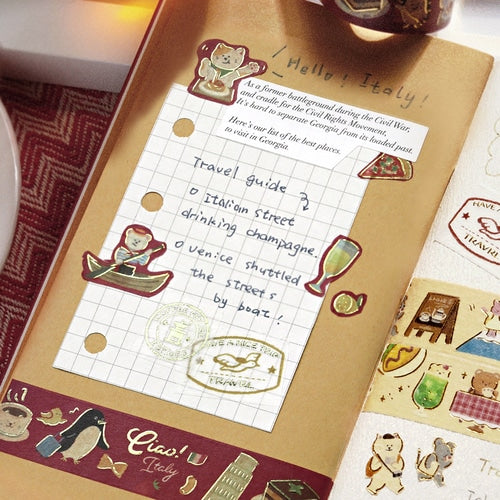 Hello! Italy!
As a former battleground during the Civil War,
and cradle for the Civil Rights Movement,
It's hard to separate Georgia from its loaded past.
Here's our list of the best places.
to visit in Georgia.
Travel guide
Italian street
drinking champagne.
Venice shuttled
the streets
by boat!
Ciao!
Italy